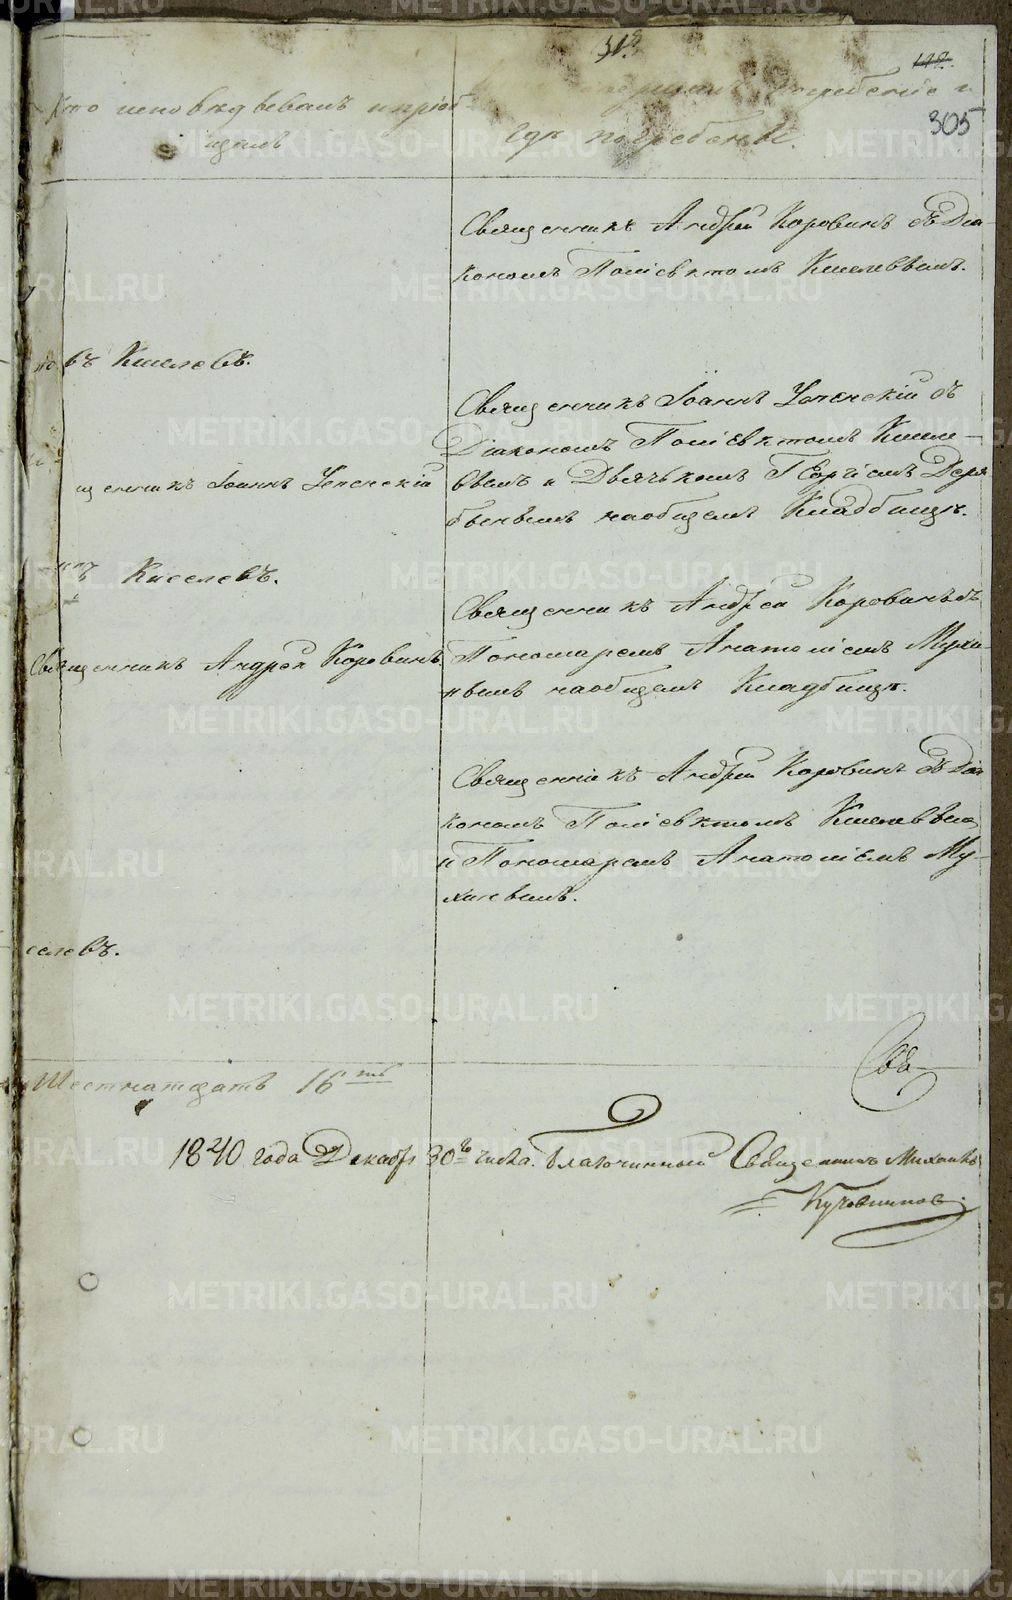 305
Кто исповѣдывалъ и пріоб-
щалъ
погребеніе и
гдѣ погребены.
Священникъ Андрей Коровинъ съ Діа-
кономъ Поліевктомъ Киселевымъ.
въ Киселевъ.
Священникъ Іоаннъ Успенскій съ
Діакономъ Поліевктомъ Кисле-
вымъ и Дьячькомъ Георгіемъ
на общемъ Кладбищѣ.
щенникъ Іоаннъ Успенскій
Киселевъ.
Священникъ Андрей Коровинъ съ
Пономаремъ Анатоліемъ Мухи-
нымъ на общемъ Кладбищѣ.
Священникъ Андрей Коровинъ
Священникъ Андрей Коровинъ съ Діа-
кономъ Поліевктомъ Киселевымъ
и Пономаремъ Анатоліемъ Му-
хинымъ.
селевъ.
Свя-
Шестнатцать 16
1840 года Декабря 30 числа. Благочинный Священникъ Михаилъ
METRIKI.GASO-URAL.RU